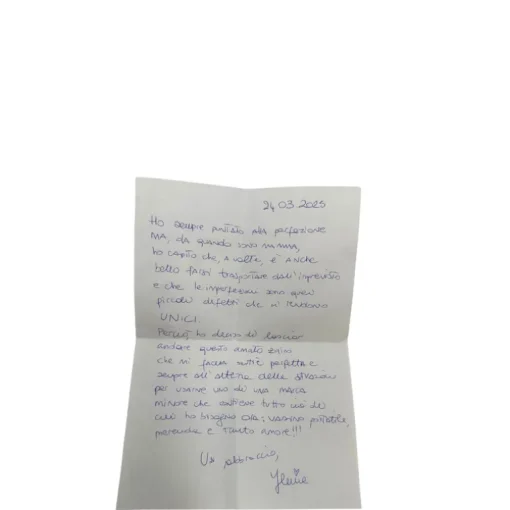 24.03.2025
Ho sempre puntato alla perfezione
MA, da quando sono mamma,
ho capito che, a volte, è anche
bello farsi trasportare dall'imprevisto
e che le imperfezioni sono quei
piccoli difetti che ci rendono
UNICI.
Perciò ho deciso di lasciar
andare questo amato zaino
che mi faceva sentire perfetta e
sempre all'altezza della situazione
per usarne uno di una marca
minore che contiene tutto ciò di
cui ho bisogno ora: vasino portatile,
merenda e tanto amore!!!
Un abbraccio,